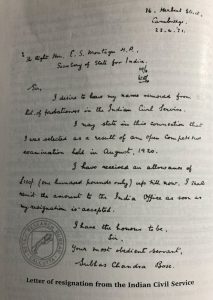 16, Herbert Street,
Cambridge.
22.4.21.
The Right Hon. E. S. Montagu M.P.
Secretary of State for India.
Sir,
I desire to have my name removed from
list of probationers in the Indian Civil Service.
I may state in this connection that
I was selected as a result of an open competitive
examination held in August, 1920.
I have received an allowance of
£100/- (one hundred pounds only) up till now. I shall
remit the amount to the India Office as soon as
my resignation is accepted.
I have the honour to be,
Sir,
Your most obedient servant,
Subhas Chandra Bose.
Letter of resignation from the Indian Civil Service